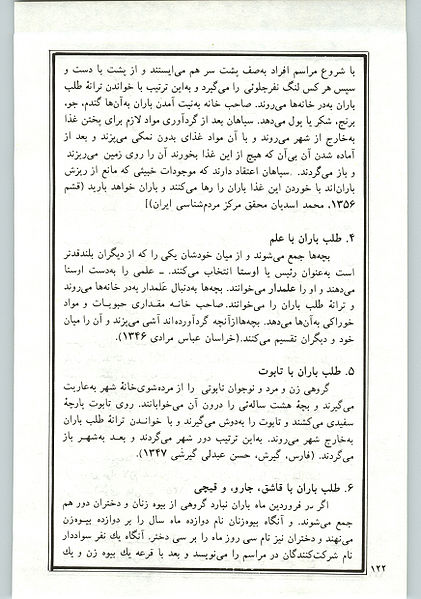 با شروع مراسم افراد به‌صف پشت سر هم می‌ایستند و از پشت با دست و
سپس هر کس لنگ نفرجلوئی را می‌گیرد و به‌این ترتیب با خواندن ترانهٔ طلب
باران به‌در خانه‌ها می‌روند. صاحب خانه به‌نیت آمدن باران به‌آن‌ها گندم، جو،
برنج، شکر یا پول می‌دهد. سیاهان بعد از گردآوری مواد لازم برای پختن غذا
به‌خارج از شهر می‌روند و با آن مواد غذای بدون نمکی می‌پزند و بعد از
آماده شدن آن بی‌آن که هیچ از این غذا بخورند آن را روی زمین می‌ریزند
و باز می‌گردند. سیاهان اعتقاد دارند که موجودات خبیثی که مانع از ریزش
باران‌اند با خوردن این غذا باران را رها می‌کنند و باران خواهد بارید (قشم
۱۳۵۶، محمد اسدیان محقق مرکز مردم‌شناسی ایران)]
۴. طلب باران با علم
بچه‌ها جمع می‌شوند و از میان خودشان یکی را که از دیگران بلندقدتر
است به‌عنوان رئیس یا اوستا انتخاب می‌کنند. ـ علمی را به‌دست اوستا
می‌دهند و او را علمدار می‌خوانند. بچه‌ها به‌دنبال عَلمدار به‌در خانه‌ها می‌روند
و ترانهٔ طلب باران را می‌خوانند. صاحب خانه مقداری حبوبات و مواد
خوراکی به‌آن‌ها می‌دهد. بچه‌هاازآنچه گردآورده‌اند آشی می‌پزند و آن را میان
خود و دیگران تقسیم می‌کنند.(خراسان عباس مرادی ۱۳۴۶).
۵. طلب باران با تابوت
گروهی زن و مرد و نوجوان تابوتی را از مرده‌شوی‌خانهٔ شهر به‌عاریت
می‌گیرند و بچهٔ هشت ساله‌ئی را درون آن می‌خوابانند. روی تابوت پارچهٔ
سفیدی می‌کشند و تابوت را به‌دوش می‌گیرند و با خواندن ترانهٔ طلب باران
به‌خارج شهر می‌روند. به‌این ترتیب دور شهر می‌گردند و بعد به‌شهر باز
می‌گردند. (فارس، گیرش، حسن عبدلی گیرشی ۱۳۴۷).
۶. طلب باران با قاشق، جارو، و قیچی
اگر در فروردین ماه باران نبارد گروهی از بیوه زنان و دختران دور هم
جمع می‌شوند. و آنگاه بیوه‌زنان نام دوازده ماه سال را بر دوازده بیوه‌زن
می‌نهند و دختران نیز نام سی روز ماه را بر سی دختر. آنگاه یك نفر سواددار
نام شرکت‌کنندگان در مراسم را می‌نویسد و بعد با قرعه یك بیوه زن و یك
۱۲۲